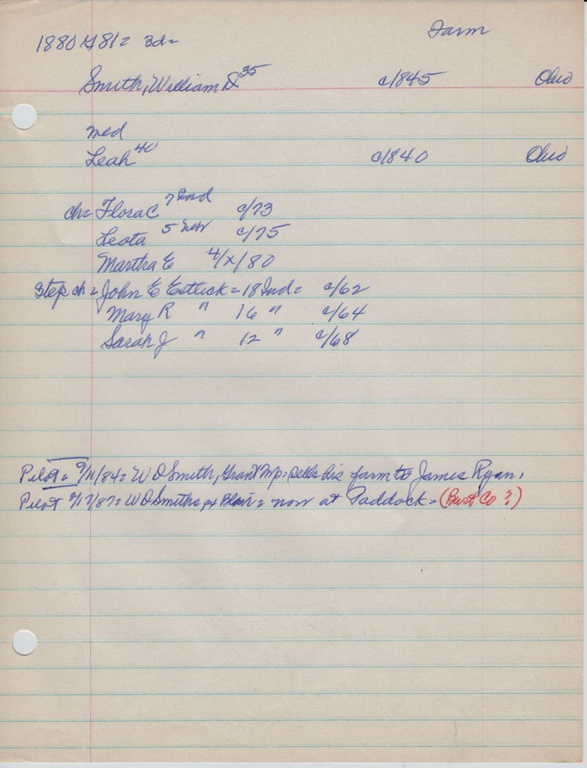 Farm
1880 #81 = 3d =
Smith, William D 35 c/1845 Ohio
med
Leah 40 c/1840 Ohio
ch = Flora C 7 Ind c/73
Leota 5 Nebr c/75
Martha E 4/x/80
Step ch = John E = 18 Ind = c/62
Mary R " 16 " c/64
Sarah J " 12 " c/68
Pilot = 9/11/84 = W D Smith, Grant Twp, sells his farm to James Ryan,
Pilot 2/17/87 = W D Smith, Blair = now at Paddock = (Burt Co ?)